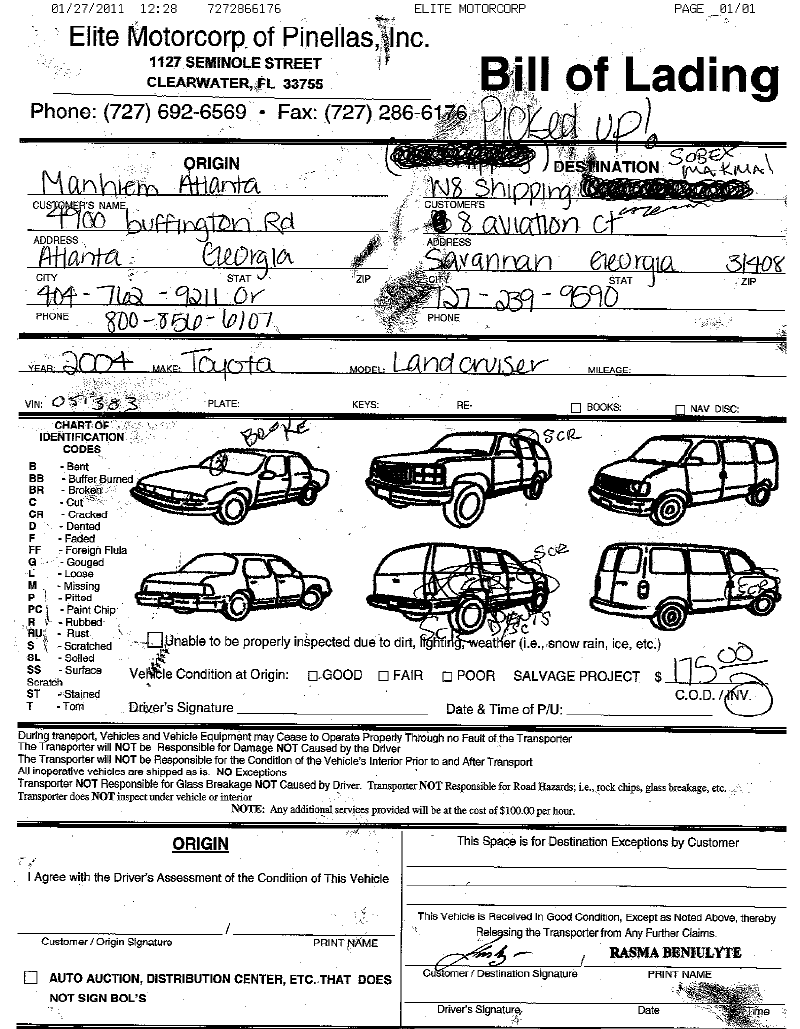 01/27/2011 12:28 7272866176 ELITE MOTORCORP PAGE 01/01
Elite Motorcorp of Pinellas, Inc.
1127 SEMINOLE STREET
CLEARWATER, FL 33755
Bill of Lading
Phone: (727) 692-6569 • Fax: (727) 286-6176
Picked up!
ORIGIN
DESTINATION SOBEX
MAKMAL
Manhiem Atlanta
W8 Shipping
CUSTOMER'S NAME
CUSTOMER'S
4900 buffington Rd
8 aviation ct
ADDRESS
ADDRESS
Atlanta Georgia
Savannah Georgia 31408
CITY STAT ZIP
CITY STAT ZIP
404-762-9211 or
727-239-9590
PHONE 800-856-6107
PHONE
YEAR: 2004 MAKE: Toyota MODEL: Landcruiser MILEAGE:
VIN: 051383 PLATE: KEYS: RE- BOOKS: NAV DISC:
CHART OF
IDENTIFICATION
CODES
B - Bent
BB - Buffer Burned
BR - Broken
C - Cut
CR - Cracked
D - Dented
F - Faded
FF - Foreign Flula
G - Gouged
L - Loose
M - Missing
P - Pitted
PC - Paint Chip
R - Rubbed
RU - Rust
S - Scratched
SL - Solled
SS - Surface
Scratch
ST - Stained
T - Torn
BROKE
SCR
SCR
SCR
SCR
DENTS
Unable to be properly inspected due to dirt, lighting, weather (i.e., snow rain, ice, etc.)
Vehicle Condition at Origin: GOOD FAIR POOR SALVAGE PROJECT $ 175.00
C.O.D. / INV.
Driver's Signature Date & Time of P/U:
During transport, Vehicles and Vehicle Equipment may Cease to Operate Properly Through no Fault of the Transporter
The Transporter will NOT be Responsible for Damage NOT Caused by the Driver
The Transporter will NOT be Responsible for the Condition of the Vehicle's Interior Prior to and After Transport
All inoperative vehicles are shipped as is. NO Exceptions
Transporter NOT Responsible for Glass Breakage NOT Caused by Driver. Transporter NOT Responsible for Road Hazards; i.e., rock chips, glass breakage, etc.
Transporter does NOT inspect under vehicle or interior
NOTE: Any additional services provided will be at the cost of $100.00 per hour.
ORIGIN
I Agree with the Driver's Assessment of the Condition of This Vehicle
/
Customer / Origin Signature PRINT NAME
AUTO AUCTION, DISTRIBUTION CENTER, ETC. THAT DOES
NOT SIGN BOL'S
This Space is for Destination Exceptions by Customer
This Vehicle is Received In Good Condition, Except as Noted Above, thereby
Releasing the Transporter from Any Further Claims.
/ RASMA BENIULYTE
Customer / Destination Signature PRINT NAME
Driver's Signature Date Time